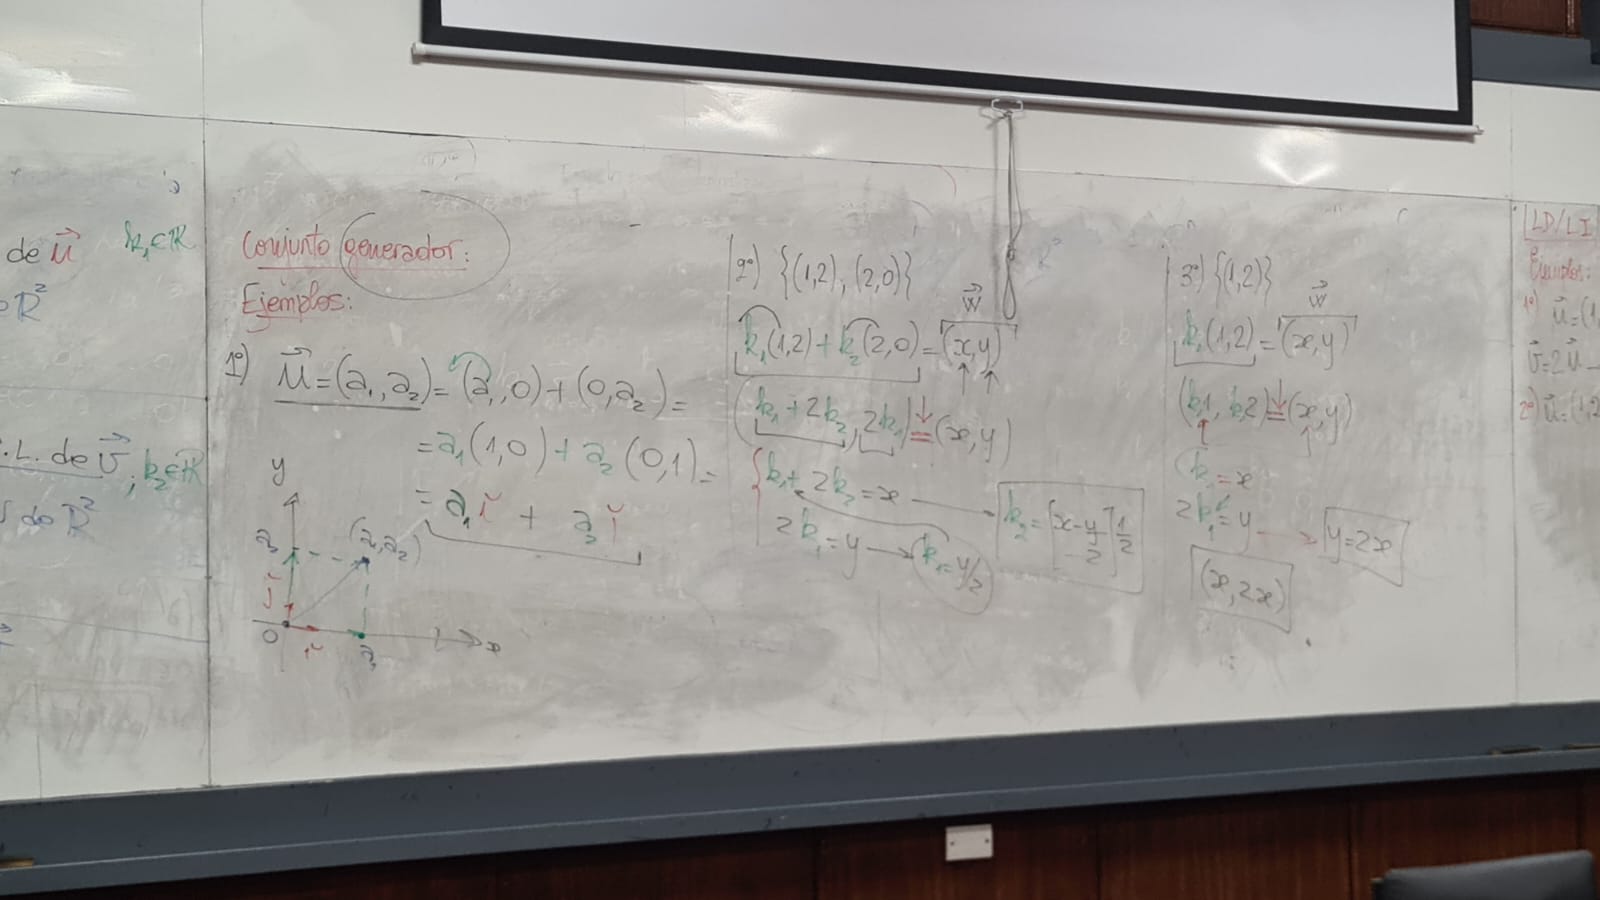 de u⃗ k₁∈ℝ
ℝ²
.L. de v⃗; k₂∈ℝ
do ℝ²
Conjunto generador:
Ejemplos:
1º) u⃗ = (a₁, a₂) = (a₁, 0) + (0, a₂) =
= a₁(1,0) + a₂(0,1) =
= a₁ i + a₂ j
y
a₂
(a₁, a₂)
j
0 i a₁ x
2º) {(1,2), (2,0)}
ℝ²
w⃗
k₁(1,2) + k₂(2,0) = (x,y)
(k₁ + 2k₂, 2k₁) = (x,y)
{ k₁ + 2k₂ = x → k₂ = [x - y/2] 1/2
2k₁ = y → k₁ = y/2
3º) {(1,2)}
w⃗
k₁(1,2) = (x,y)
(k₁1, k₁2) = (x,y)
k₁ = x
2k₁ = y → y = 2x
(x, 2x)
LD/LI
Ejemplos:
1º) u⃗ = (1,
v⃗ = 2u⃗
2º) u⃗ = (1,2